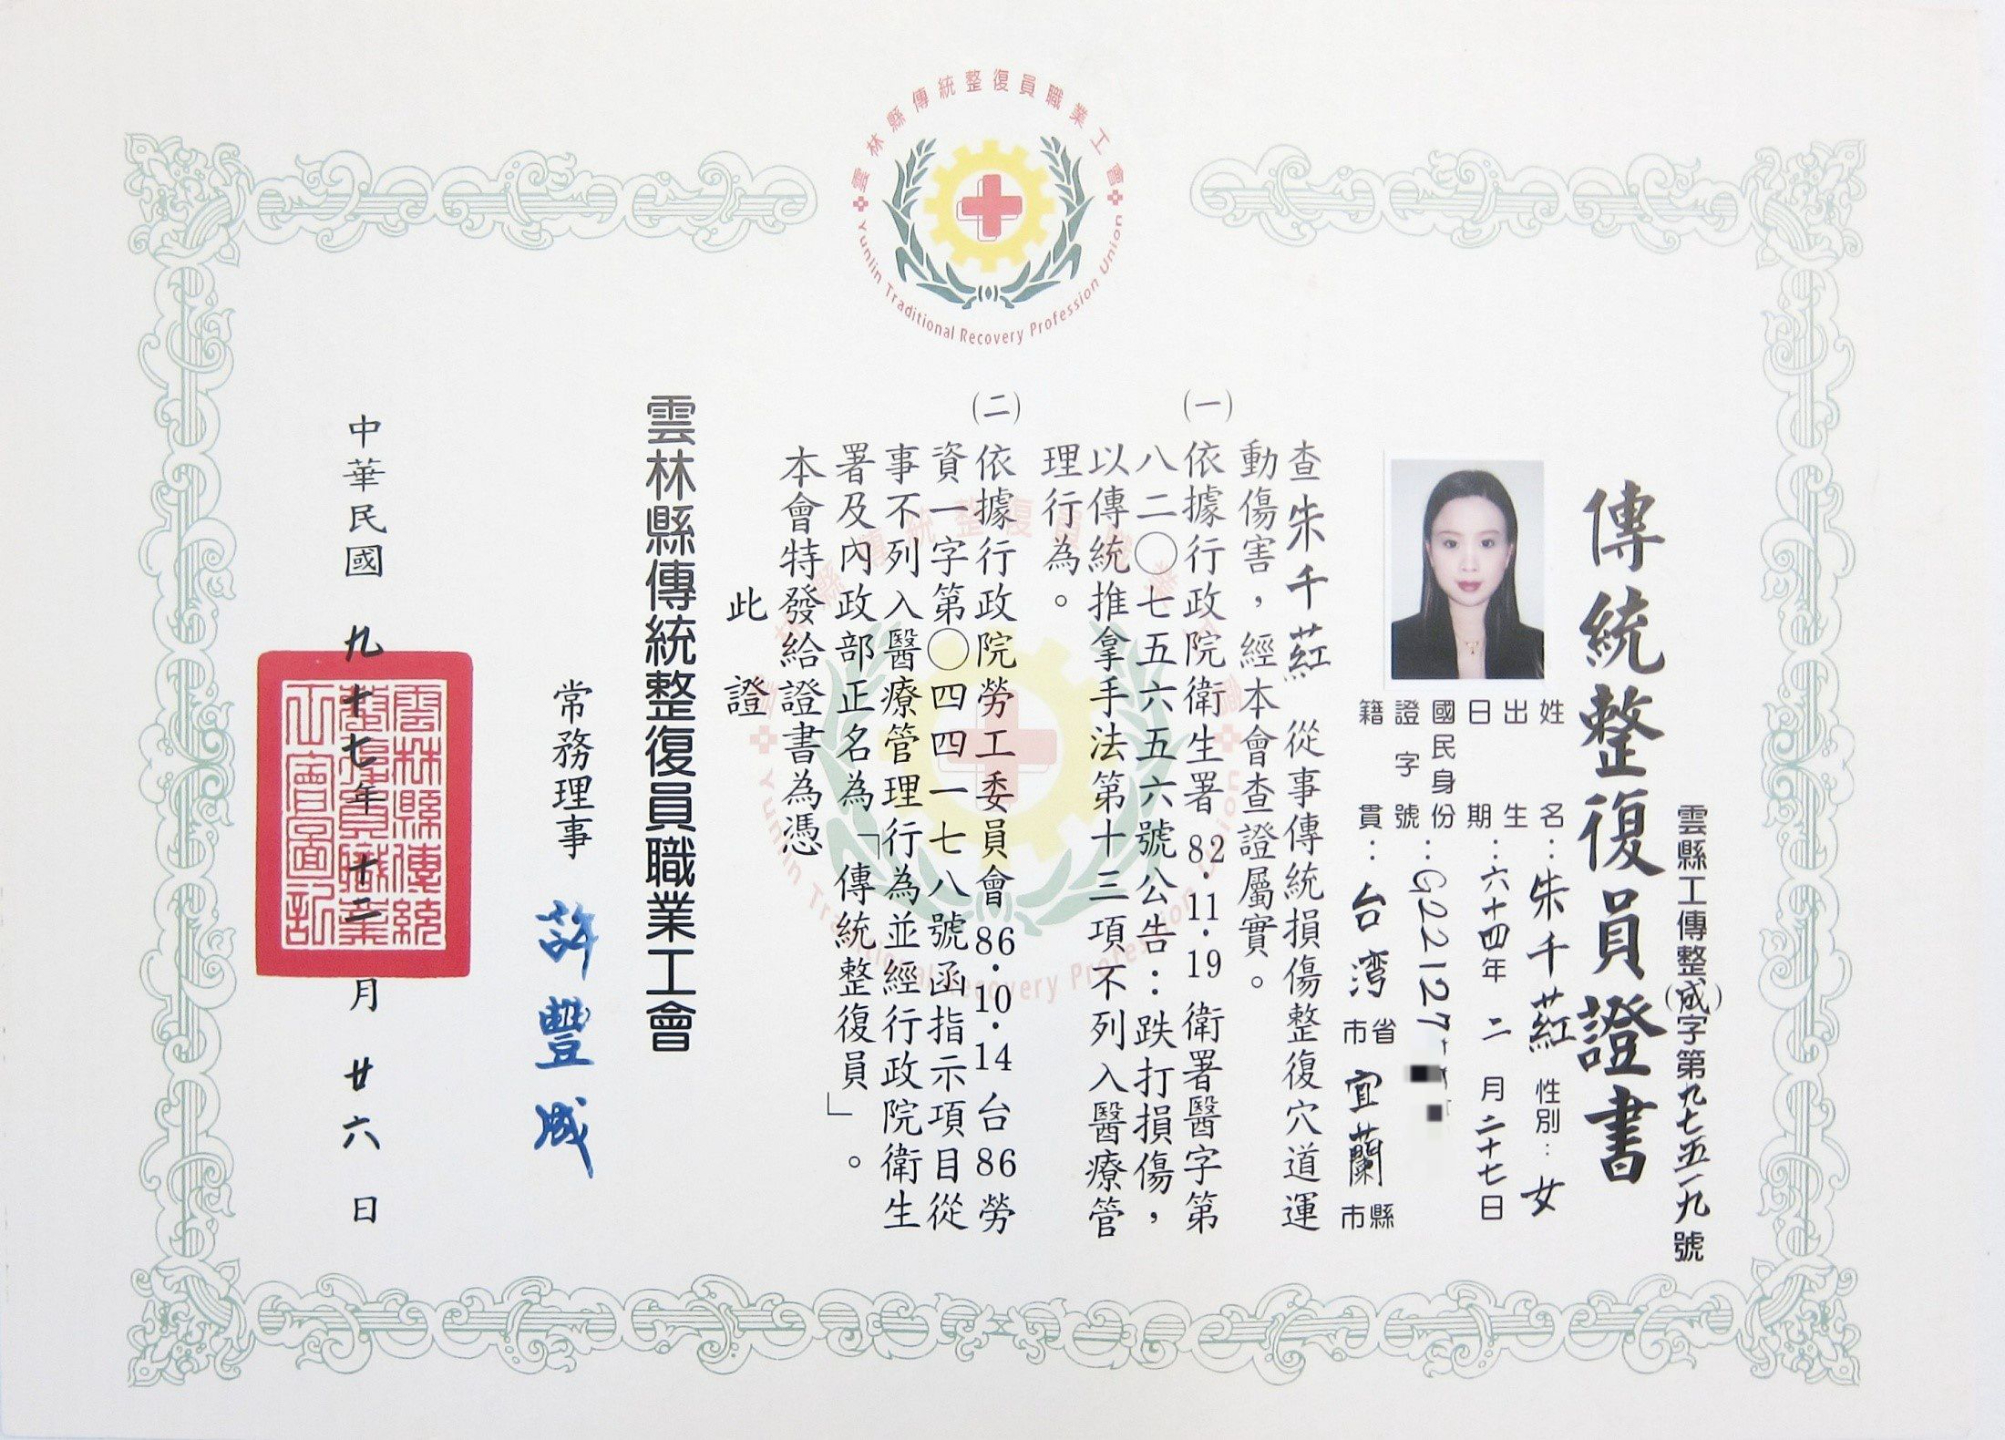 雲林縣傳統整復員職業工會
Yunlin Traditional Recovery Profession Union
雲縣工傳整(成)字第九七五一九號
傳統整復員證書
姓名：朱千葒 性別：女
出生日期：六十四年二月二十七日
國民身份證字號：G22127
籍貫：台灣省市宜蘭縣市
查朱千葒 從事傳統損傷整復穴道運
動傷害，經本會查證屬實。
(一)依據行政院衛生署82.11.19衛署醫字第
八二〇七五六五六號公告：跌打損傷，
以傳統推拿手法第十三項不列入醫療管
理行為。
(二)依據行政院勞工委員會86.10.14台86勞
資一字第〇四四一七八號函指示項目從
事不列入醫療管理行為並經行政院衛生
署及內政部正名為「傳統整復員」。
本會特發給證書為憑
此證
雲林縣傳統整復員職業工會
常務理事 許豐成
中華民國九十七年十二月廿六日
雲林縣傳統
整復員職業
工會圖記